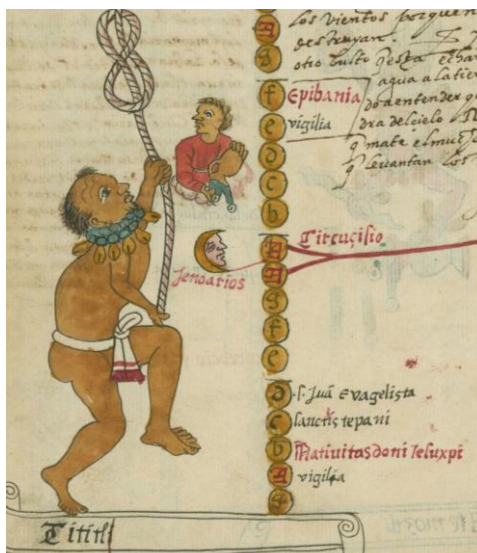 los vientos porque
destruyan.
otro busto questa echa
agua a la tie
do a entender q
dra del cielo
q mate el
q levantan los
A
g
f
Epibania
e
vigilia
d
c
b
A
Circucisio
A
Jenoarios
g
f
e
d
.S. Juã Evagelista
c
sanctistepani
b
Natiuitas doni Jeluxpi
A
vigilia
g
Tititl